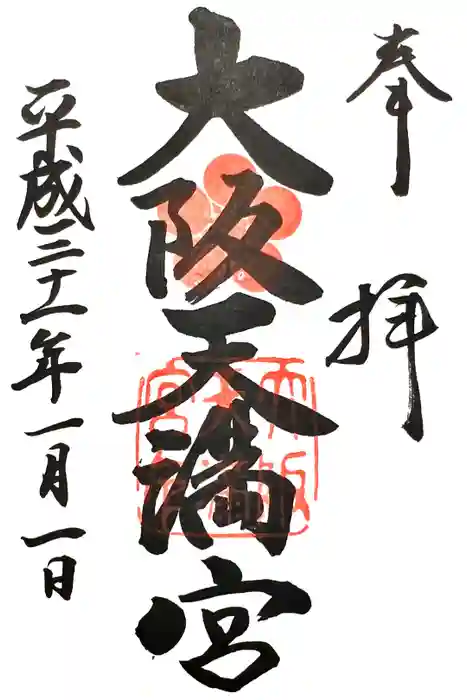 奉拝
大阪天満宮
平成三十一年一月一日